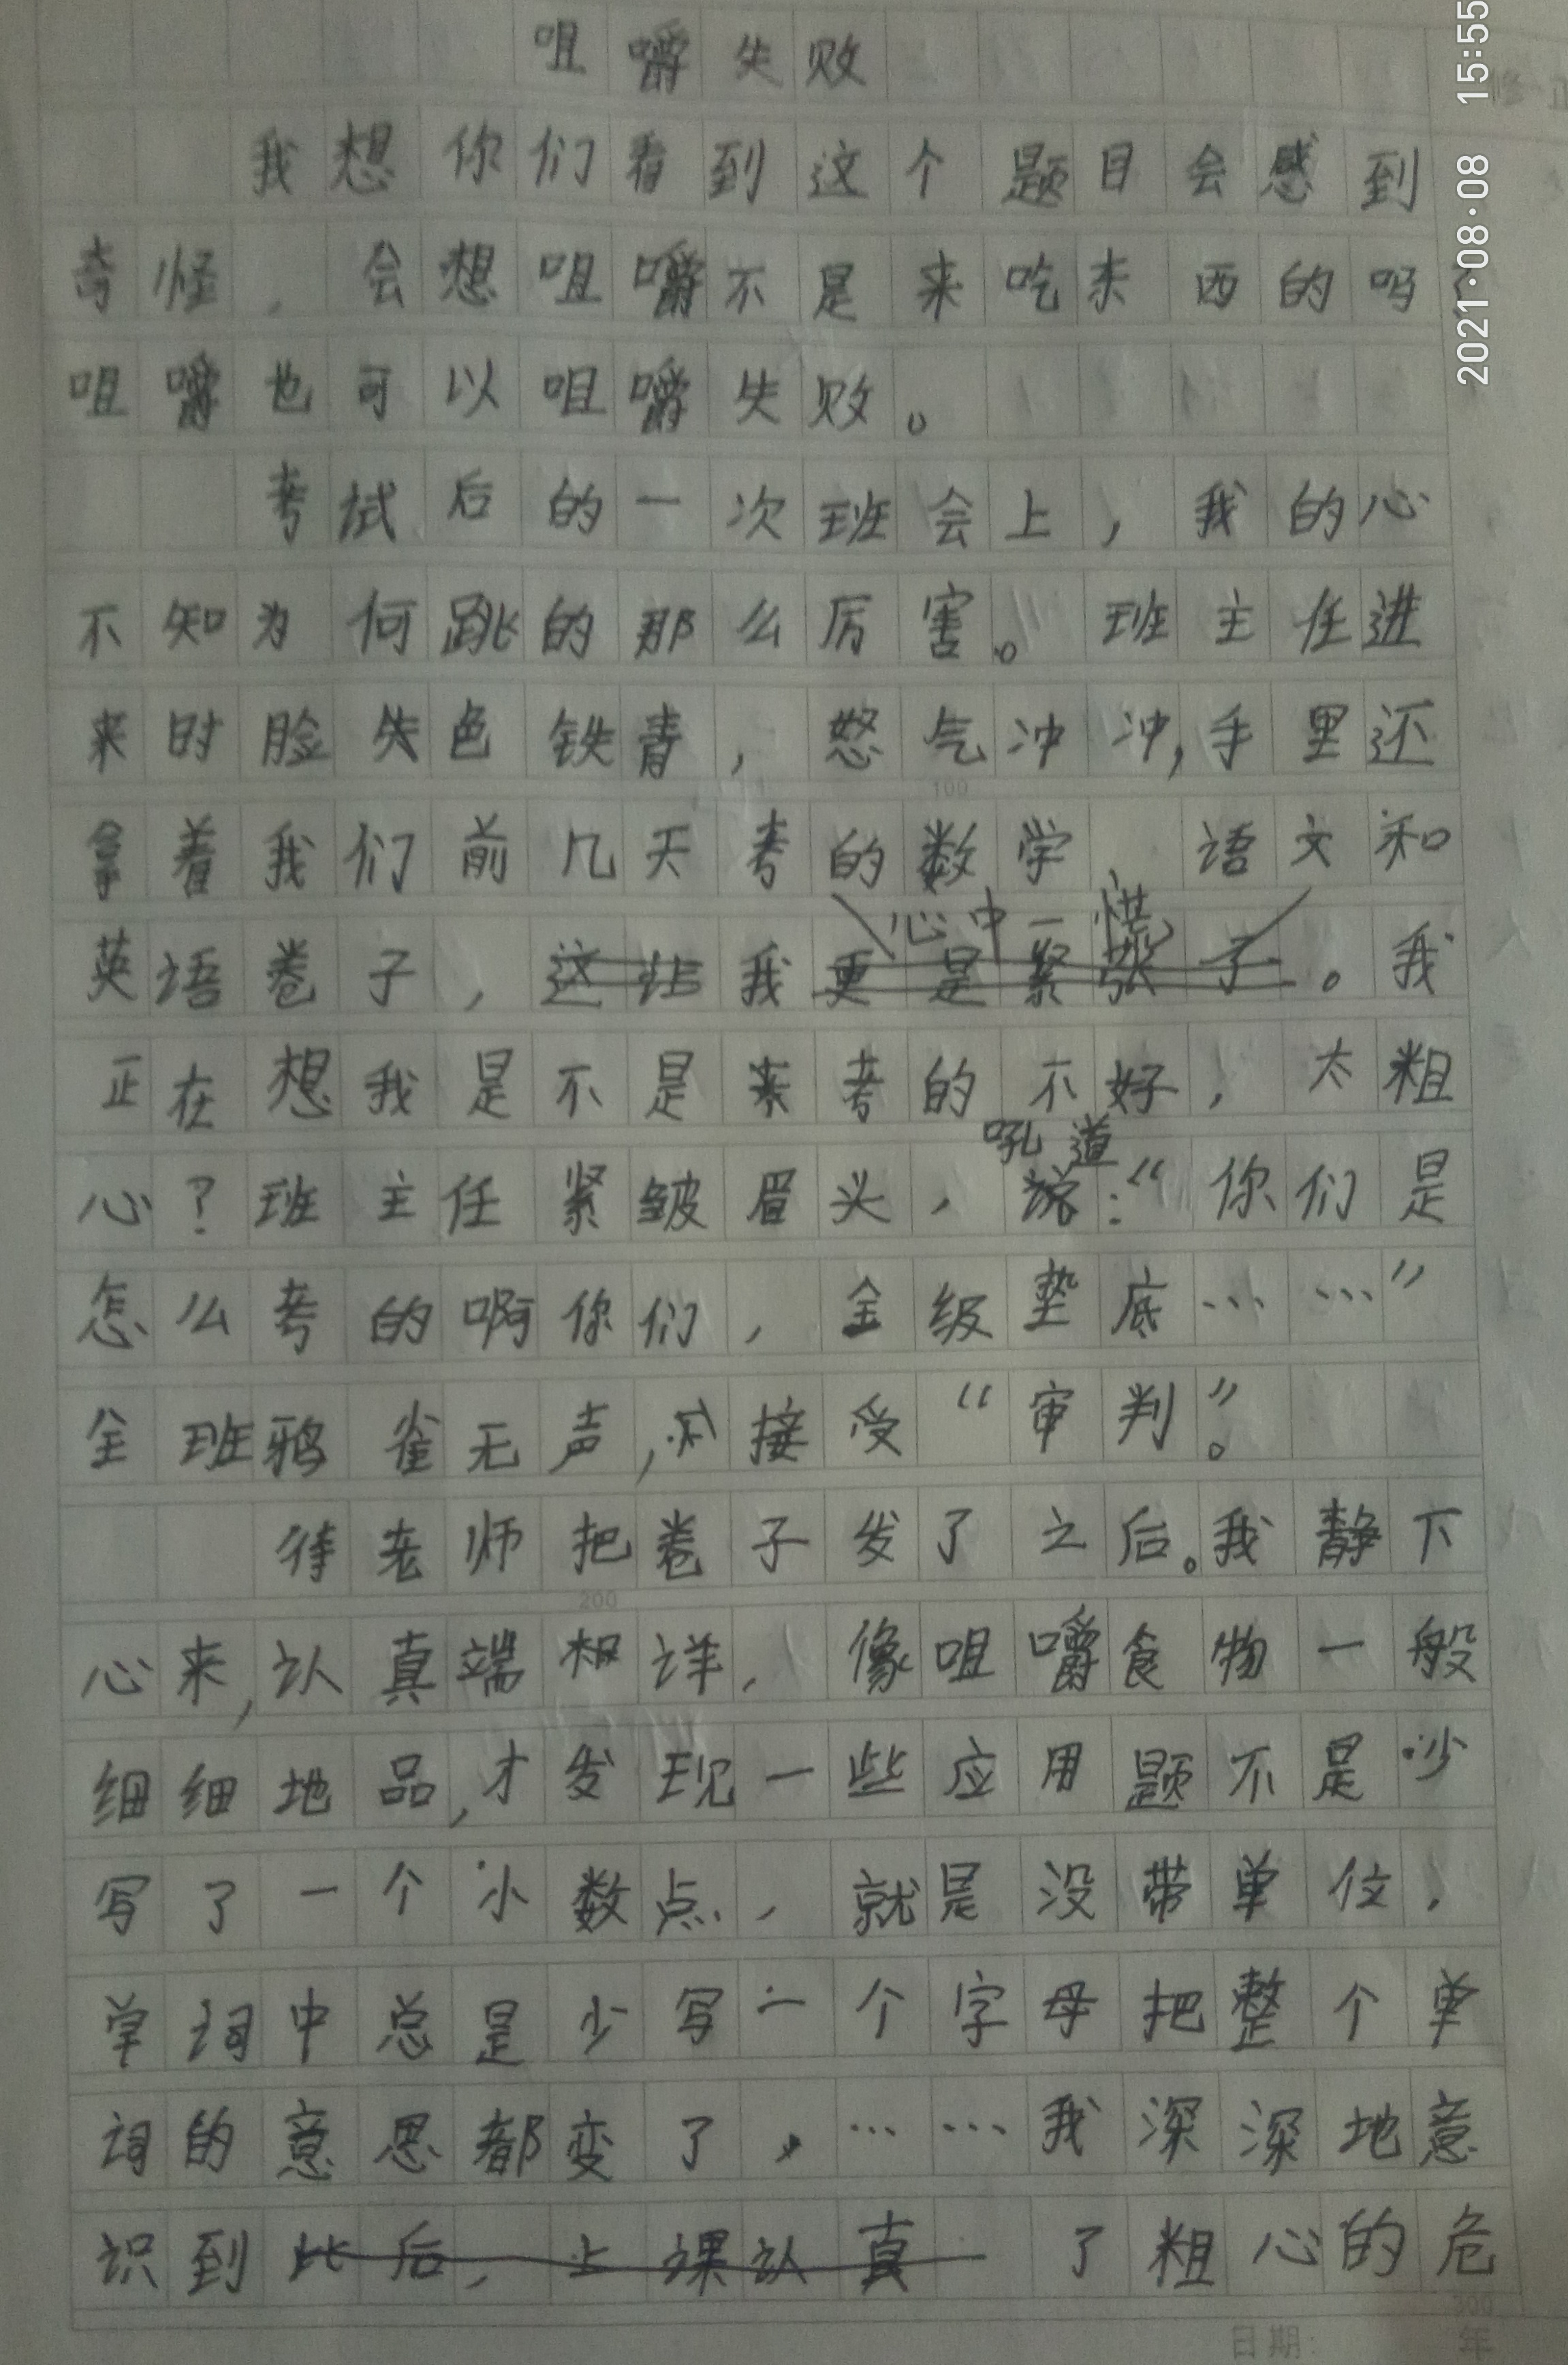 咀嚼失败
我想你们看到这个题目会感到
奇怪，会想咀嚼不是来吃东西的吗？
咀嚼也可以咀嚼失败。
考试后的一次班会上，我的心
不知为何跳的那么厉害。班主任进
来时脸色铁青，怒气冲冲，手里还
拿着我们前几天考的数学、语文和
心中一慌
英语卷子，这让我更是紧张了。我
正在想我是不是来考的不好，太粗
吼道
心？班主任紧皱眉头，说：“你们是
怎么考的啊你们，全级垫底……”
全班鸦雀无声，接受“审判”。
待老师把卷子发了之后。我静下
心来，认真端相详，像咀嚼食物一般
细细地品，才发现一些应用题不是少
写了一个小数点，就是没带单位，
单词中总是少写一个字母把整个单
词的意思都变了，……我深深地意
识到此后，上课认真了粗心的危
100
200
300
日期： 年
2021·08·08 15:55